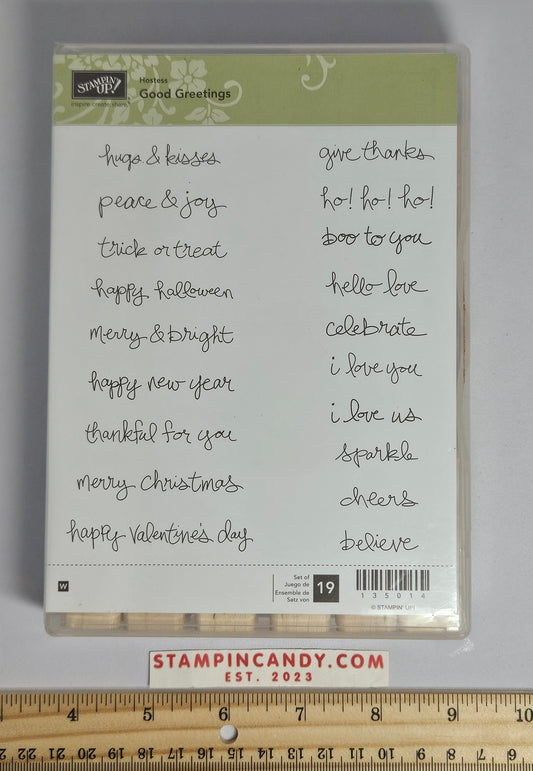 STAMPIN' UP!
inspire.create.share.
Hostess
Good Greetings
hugs & kisses
peace & joy
trick or treat
happy halloween
merry & bright
happy new year
thankful for you
merry christmas
happy valentine's day
give thanks
ho! ho! ho!
boo to you
hello love
celebrate
i love you
i love us
sparkle
cheers
believe
W
Set of
Juego de
Ensemble de
Satz von
19
135014
© STAMPIN' UP!
STAMPINCANDY.COM
EST. 2023
4 5 6 7 8 9 10